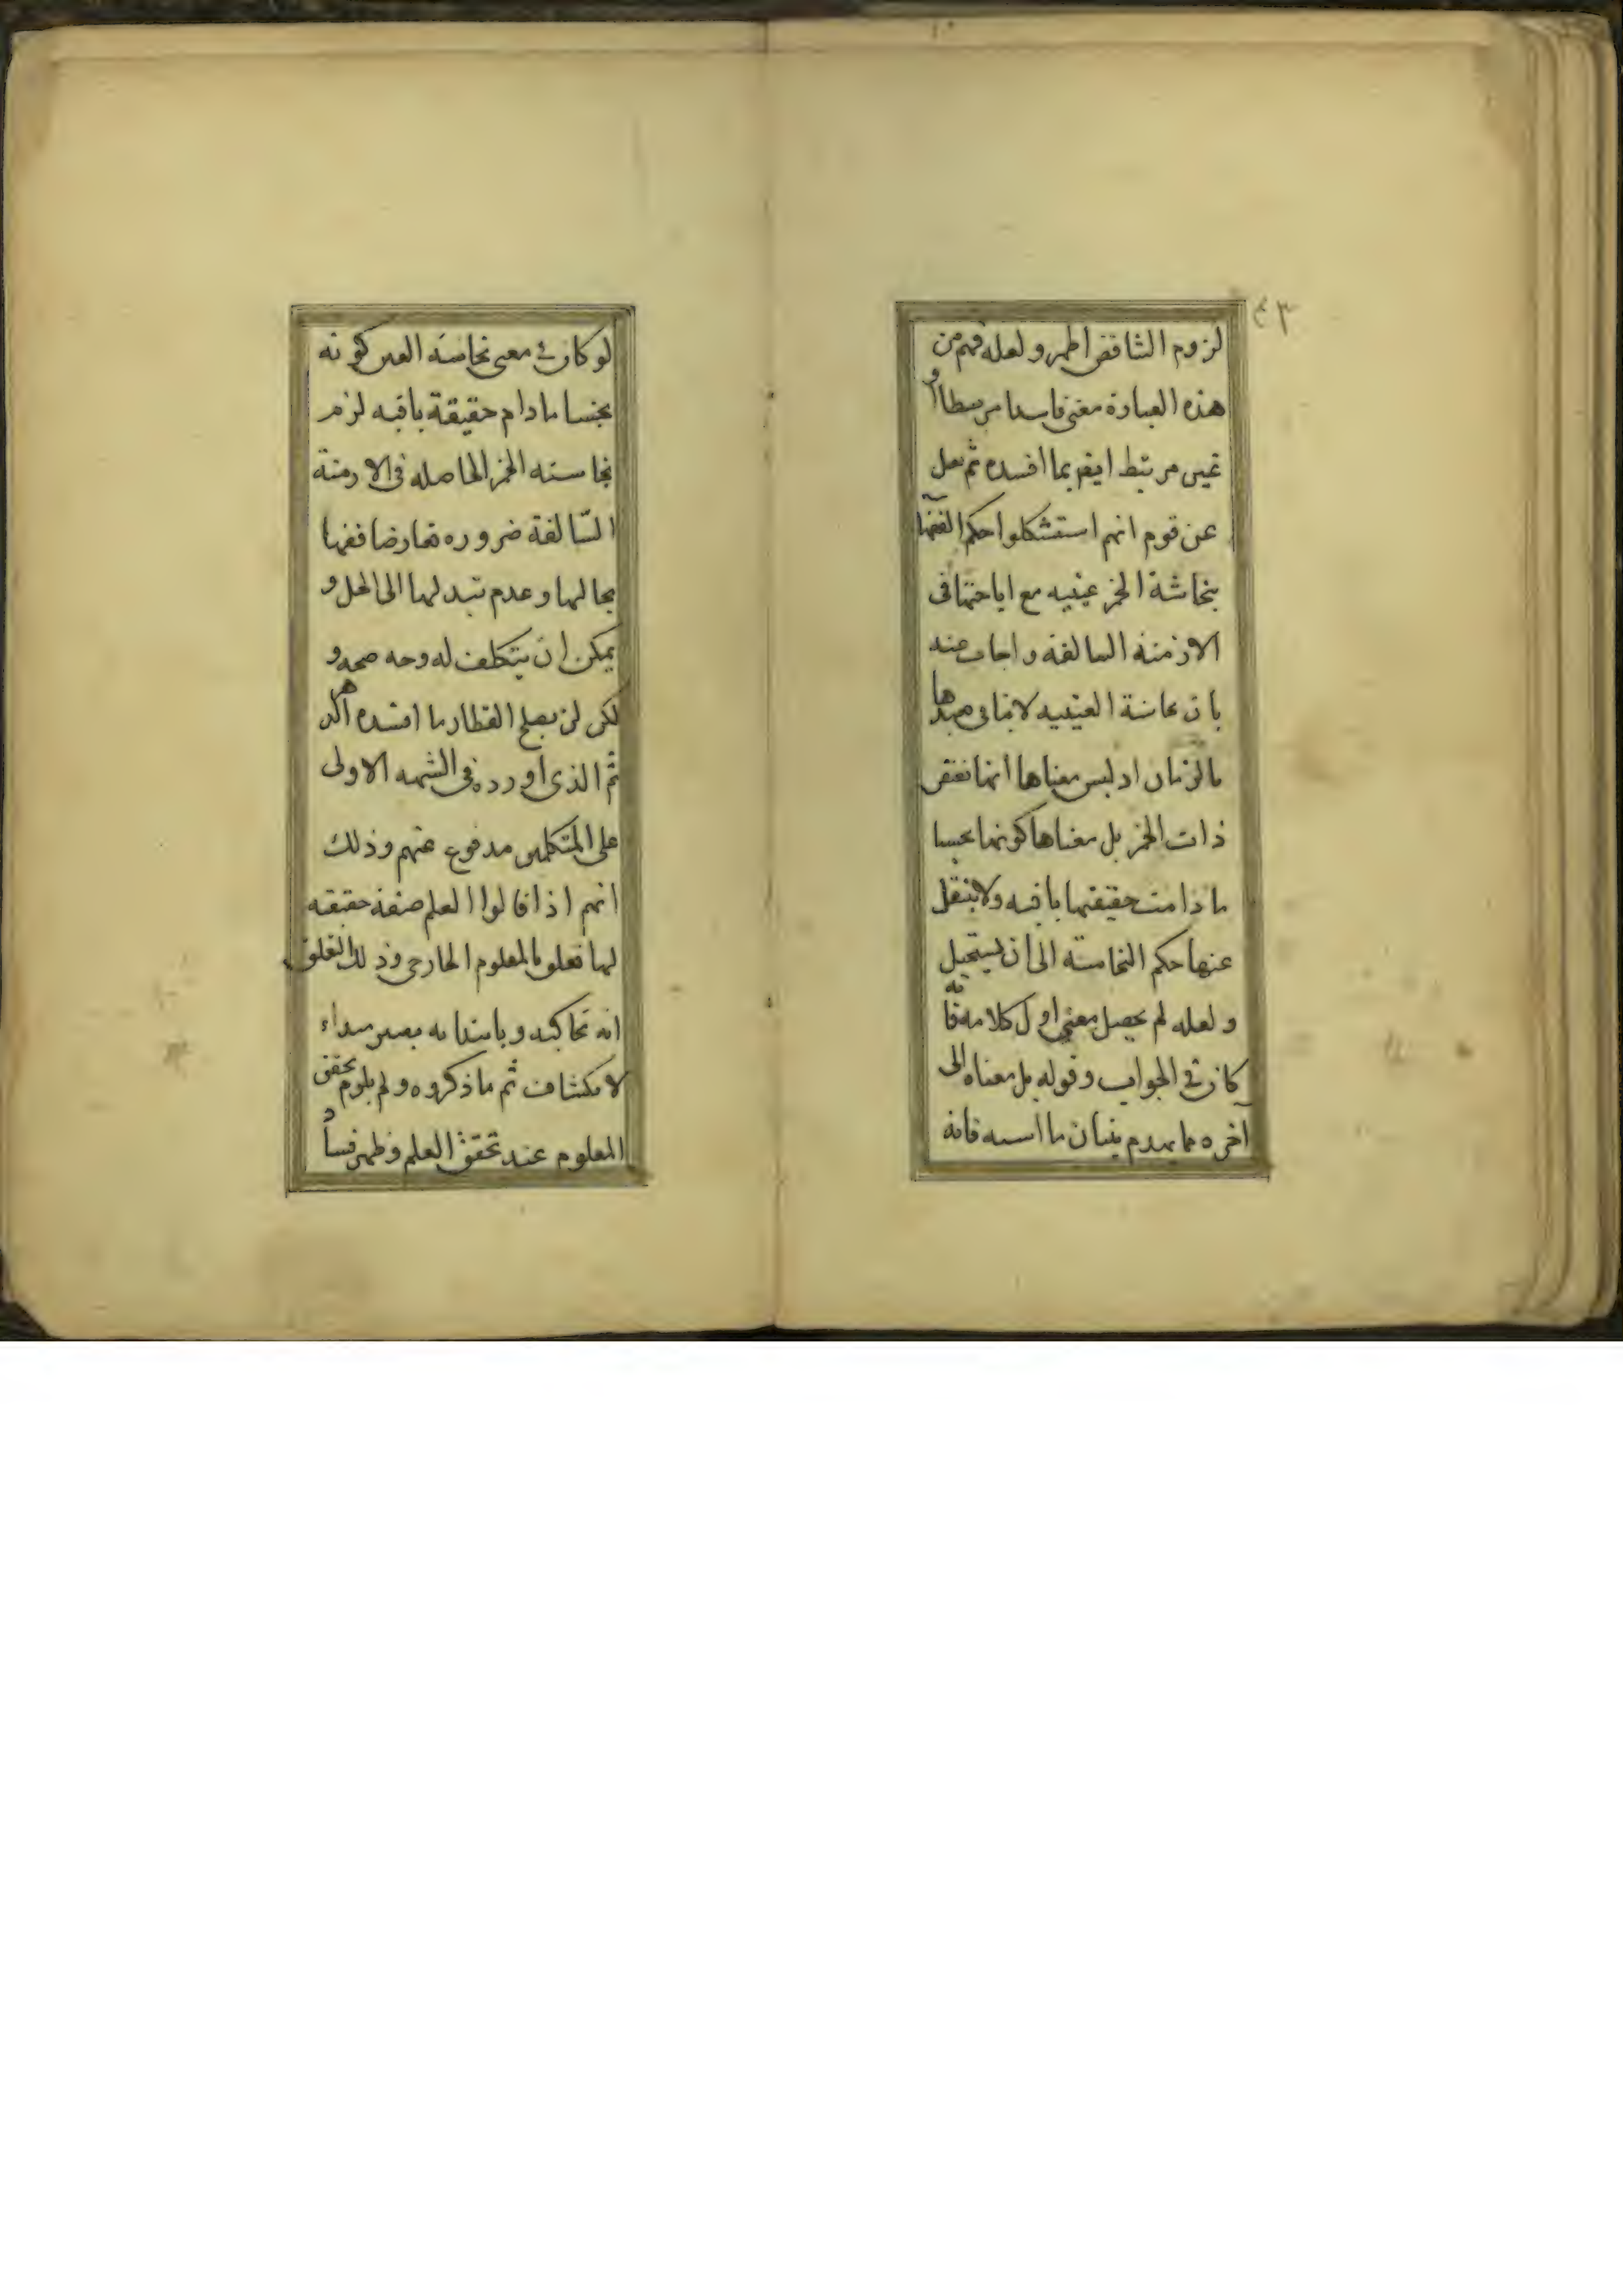 لزوم التناقض اظهر و لعله فهم من
هذه العبارة معنى فاسدا مرتبطا او
غير مرتبط ايضر بما افسده ثم نقل
عن قوم انهم استشكلوا حكم الفقهاء
بنجاسة الخمر عينيه مع اباحتها فى
الازمنة السالفة و اجاب عنه
بان نجاسة العينيه لا ينافى
بالزمان اذ ليس معناها انها
ذات الخمر بل معناها كونها نجسا
ما دامت حقيقتها باقيه ولا ينتقل
عنها حكم النجاسته الى ان يستحيل
و لعله لم يحصل معنى اول كلامه فانه
كان فى الجواب و قوله بل معناه الى
آخره مما يهدم بنيان ما اسسه فانه
لو كان فى معنى نجاسته العين كونه
نجسا ما دام حقيقة باقيه لزم
نجاسته الخمر الحاصله فى الازمنة
السّالفة ضروره
بحالها و عدم تبدلها الى الخل و
يمكن ان يتكلف له وجه صحه و
لكن لن يصلح العطار ما افسده الدهر
ثم الذى اورده فى الشبهه الاولى
على المتكلمين مدفوع عنهم و ذلك
انهم اذا قالوا العلم صفة حقيقه
لها تعلق بالمعلوم الخارجى و ذلك التعلق
انه
لانكشاف ثم ما ذكروه و لم يلزم تحقق
المعلوم عند تحقق العلم و ظهر فساد